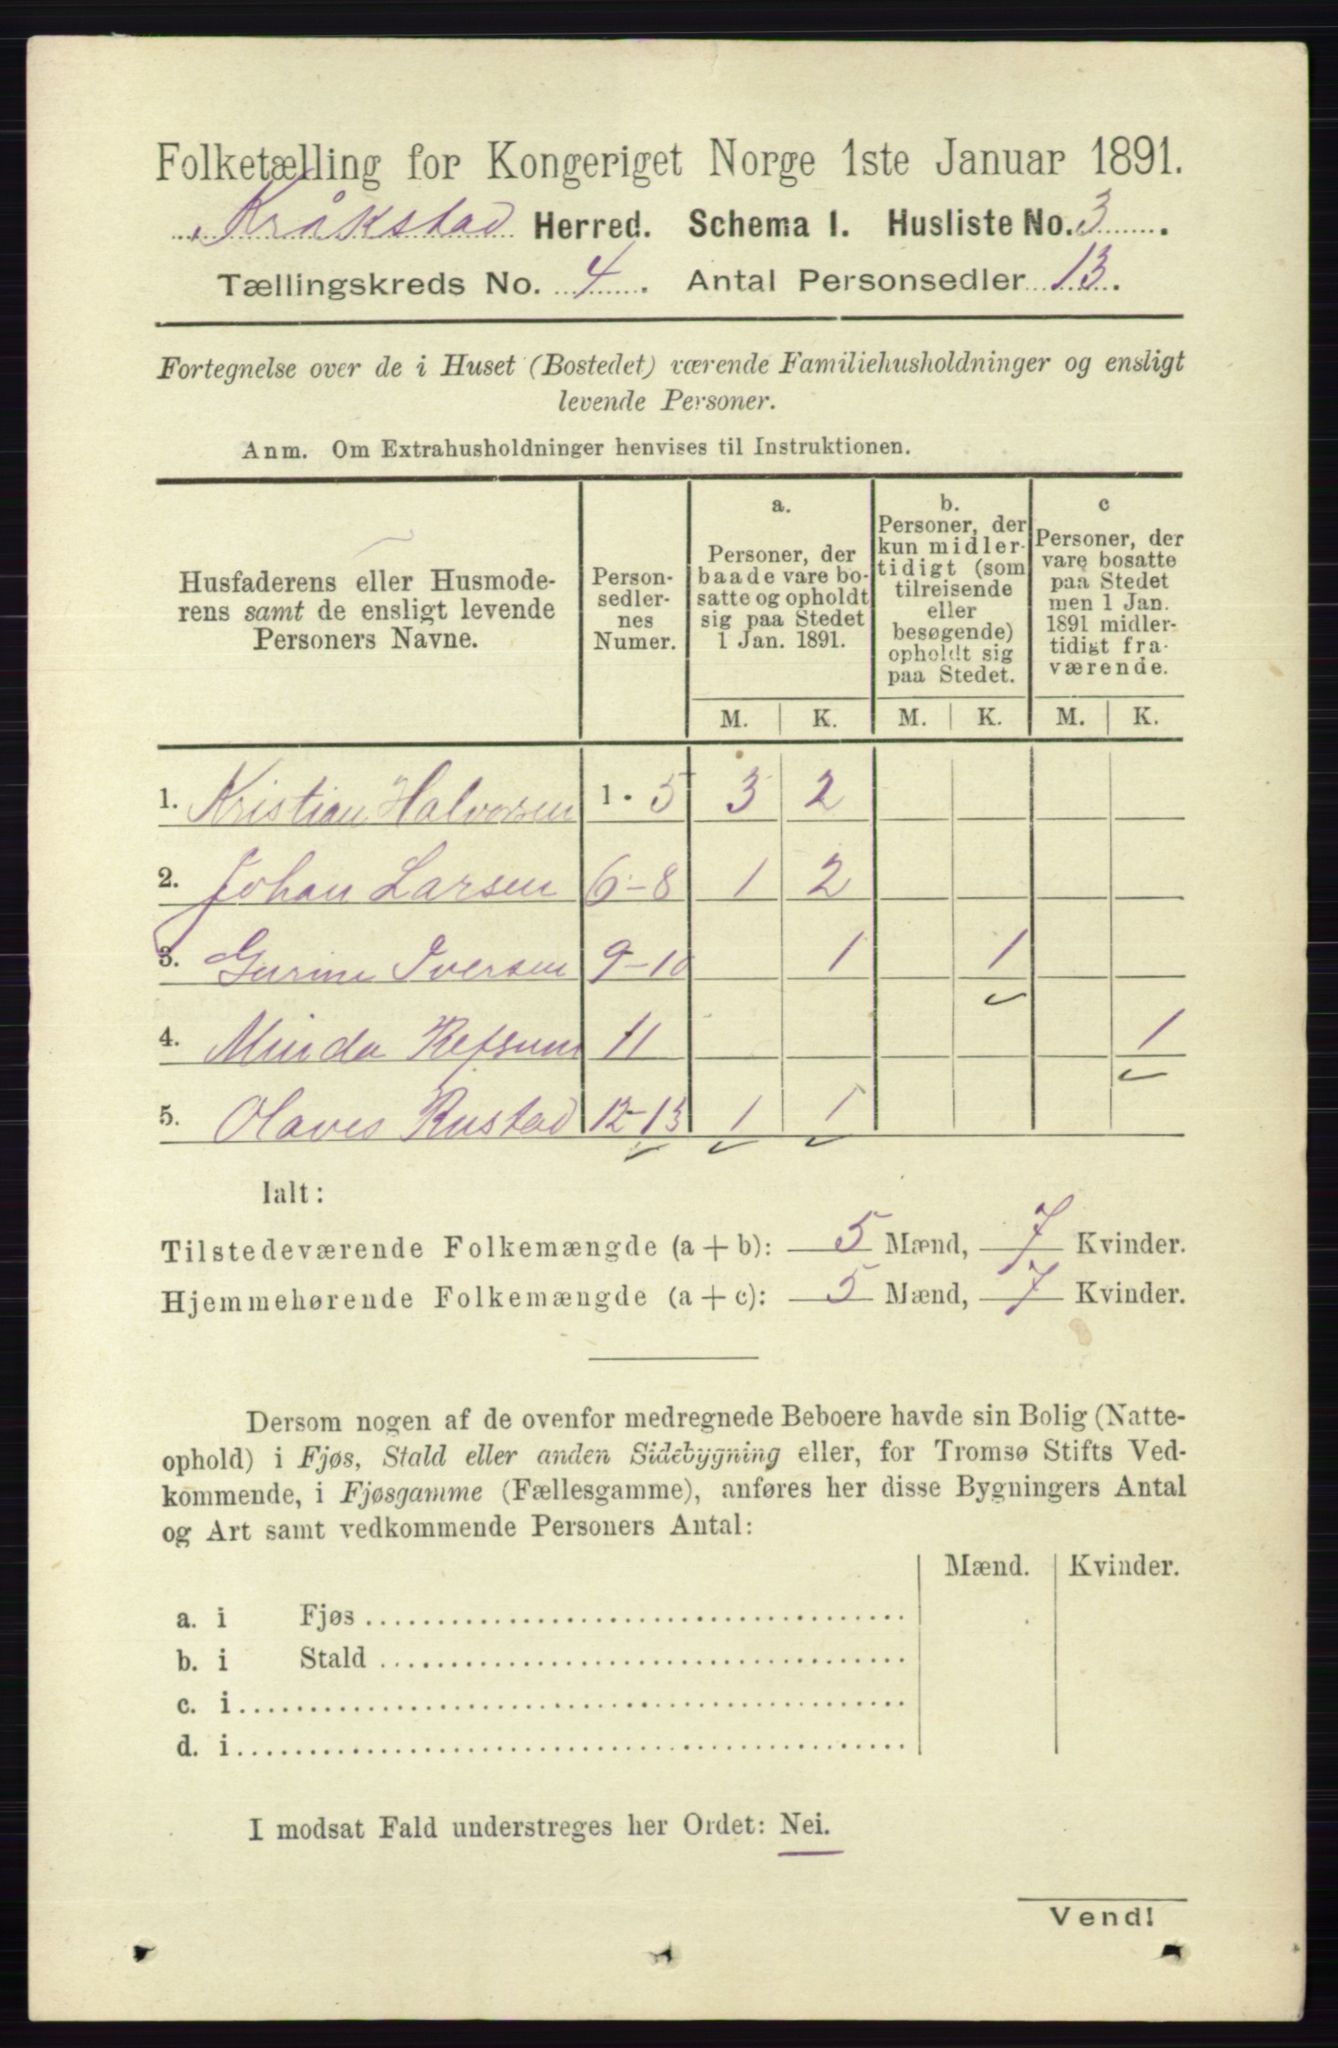 Folketælling for Kongeriget Norge 1ste Januar 1891.
Kråkstad Herred. Schema 1. Husliste No. 3.
Tællingskreds No. 4. Antal Personsedler 13.
Fortegnelse over de i Huset (Bostedet) værende Familiehusholdninger og ensligt
levende Personer.
Anm. Om Extrahusholdninger henvises til Instruktionen.
Husfaderens eller Husmode-
rens samt de ensligt levende
Personers Navne.
Person-
sedler-
nes
Numer.
a.
Personer, der
baade vare bo-
satte og opholdt
sig paa Stedet
1 Jan. 1891.
b.
Personer, der
kun midler-
tidigt (som
tilreisende
eller
besøgende)
opholdt sig
paa Stedet.
c
Personer, der
vare bosatte
paa Stedet
men 1 Jan.
1891 midler-
tidigt fra-
værende.
M. K. M. K. M. K.
1. Kristian Halvorsen 1 - 5 3 2
2. Johan Larsen 6-8 1 2
3. Gurine Iversen 9-10 1 1
4. Minda Refsum 11 1
5. Olaves Rustad 12-13 1 1
Ialt:
Tilstedeværende Folkemængde (a + b): 5 Mænd, 7 Kvinder.
Hjemmehørende Folkemængde (a + c): 5 Mænd, 7 Kvinder.
Dersom nogen af de ovenfor medregnede Beboere havde sin Bolig (Natte-
ophold) i Fjøs, Stald eller anden Sidebygning eller, for Tromsø Stifts Ved-
kommende, i Fjøsgamme (Fællesgamme), anføres her disse Bygningers Antal
og Art samt vedkommende Personers Antal:
Mænd. Kvinder.
a. i Fjøs
b. i Stald
c. i
d. i
I modsat Fald understreges her Ordet: Nei.
Vend!